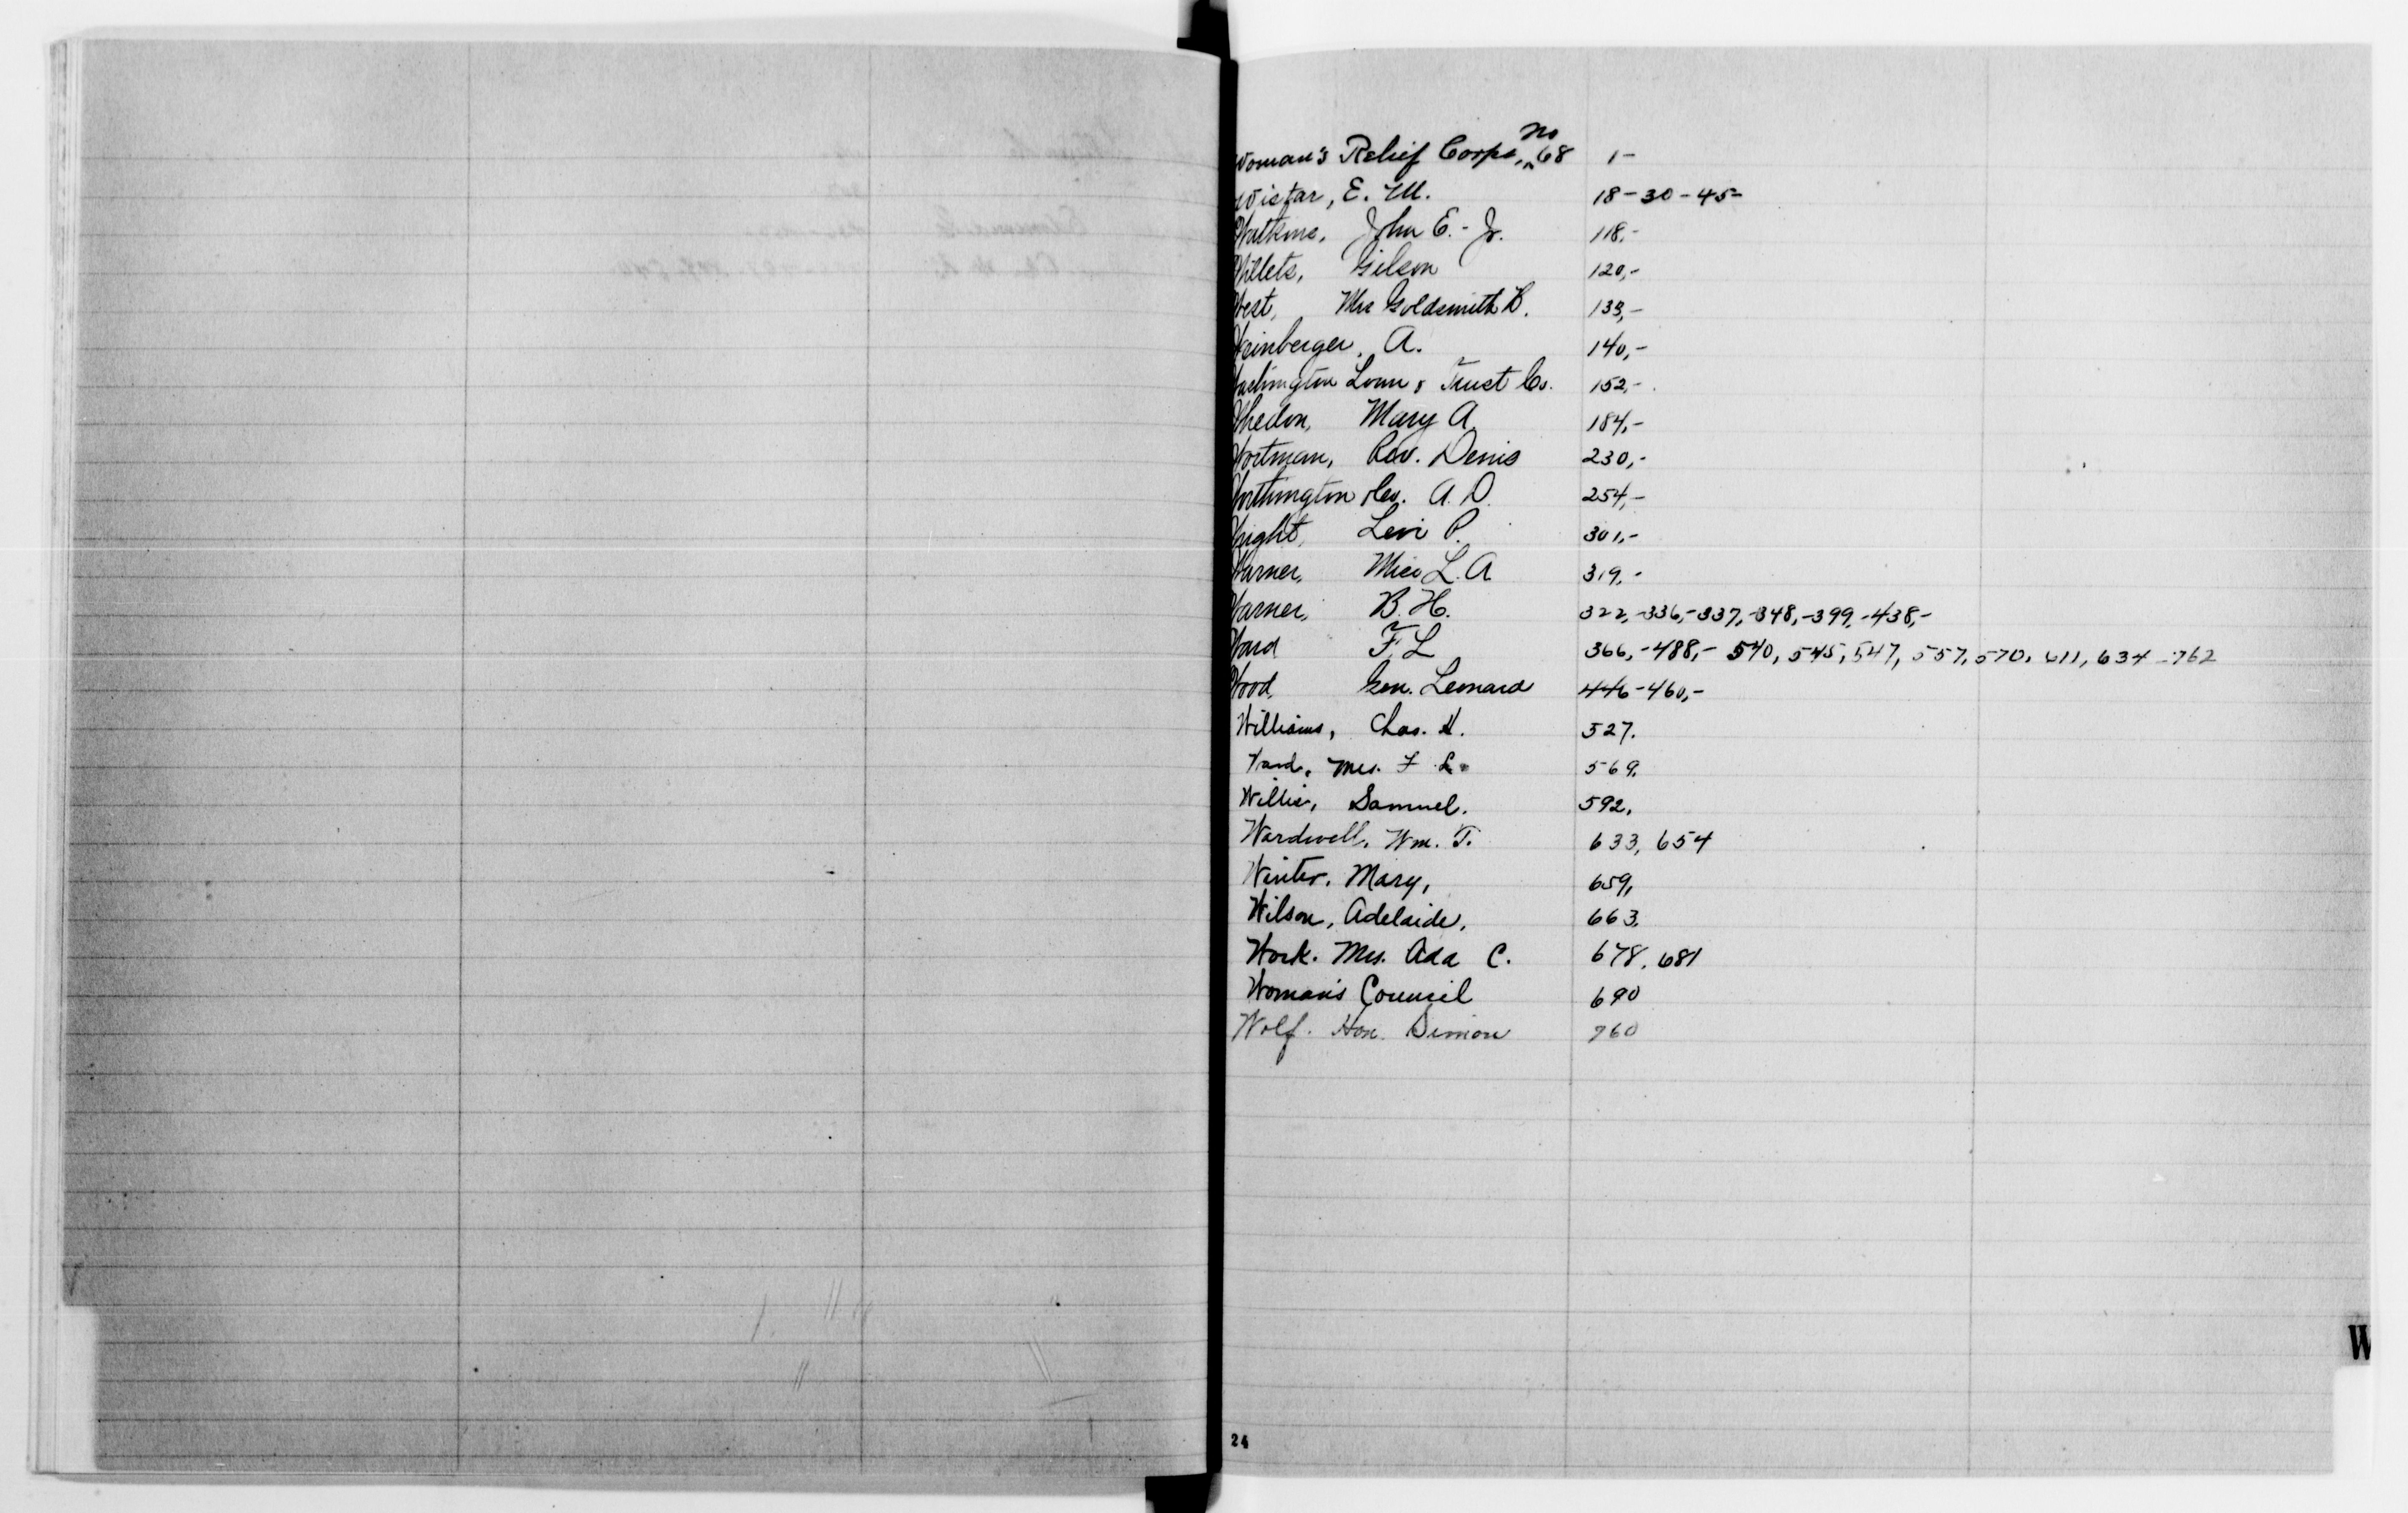 Woman's Relief Corps, No 68 1-
Wistar, E. M. 18-30-45-
Watkins, John E.- Jr. 118,-
Willets, Gilson 120,-
West, Mrs Goldsmith B. 139,-
Weinberger, A. 140,-
Washington Loan & Trust Co. 152,-
Whedon, Mary A. 184,-
Wortman, Rev. Denis 230,-
Worthington Rev. A. D. 254,-
Wright, Levi P. 301,-
Warner, Miss L. A 319,-
Warner, B. H. 322,-336,-337,-348,-399,-438,-
Ward F. L 366,-488,- 540, 545, 547, 557, 570, 611, 634 -762
Wood, Gen. Leonard 446-460,-
Williams, Chas. H. 527.
Ward, Mrs. F L. 569.
Willis, Samuel. 592.
Wardwell, Wm. T. 633, 654
Winter, Mary, 659,
Wilson, Adelaide, 663.
Work. Mrs. Ada C. 678, 681
Woman's Council 690
Wolf. Hon. Simon 760
W
24